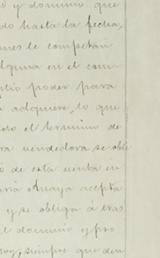 o y dominio que
do hasta la fecha,
ones le competan
alguna en el con-
plio poder para
adquiere, lo que
do el termino de
ra vendedora se obli
o de esta venta en
aria Anaya acepta
y se obliga á tras
el dominio y pro
siempre que den